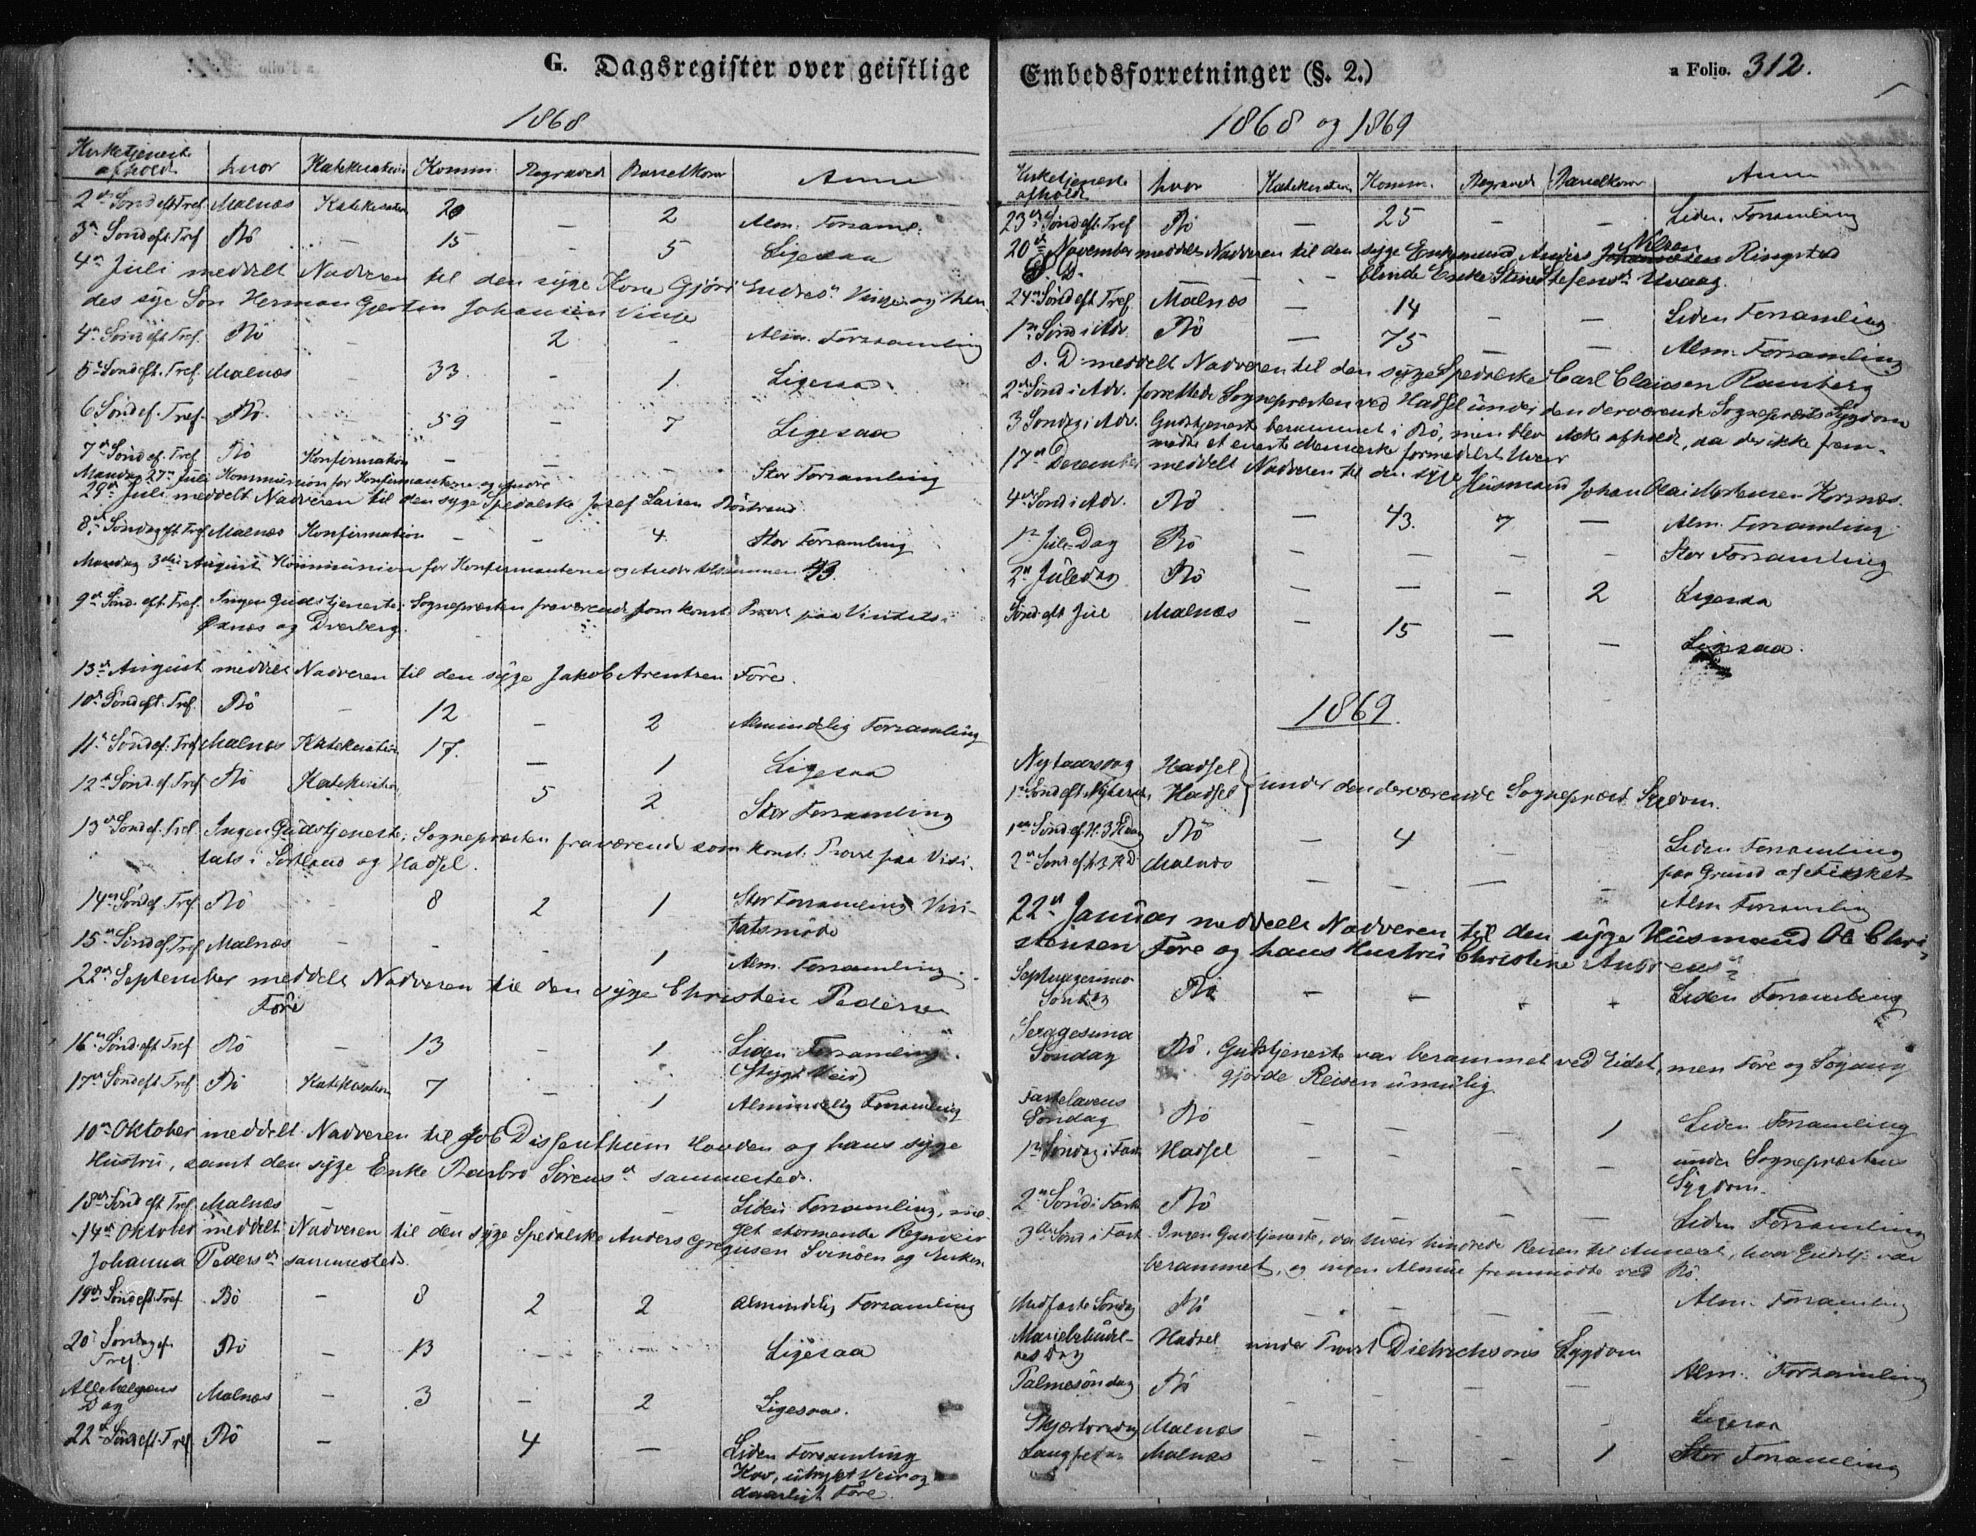 G. Dagsregister over geistlige
1868
Kirketjeneste afholdt hvor Katekisation Komm. Begraved Barselkoner Anm
2den Sönd. eft. Tref. Malnæs Katekisation 20 – 2 Alm. Forsaml.
3die Sönd. eft. Tref. Bö – 15 – 5 Ligesaa
4de Juli meddelt Nadveren til den syge Kone Gjöri Endresd. Vinje og hen-
des syge Sön Herman Gjertin Johansen Vinje
4de Sönd. eft. Tref. Bö – – 2 – Alm. Forsamling
5te Sönd. eft. Tref. Malnæs – 33 – 1 Ligesaa
6 Sönd. ef. Tref. Bö – 59 – 7 Ligesaa
7de Sönd. ef. Tref. Bö Konfirmation – – – Stor Forsamling
Mandag 27de Juli Kommunion for Konfirmanterne og Andre
29de Juli meddelt Nadveren til den syge Spedalske Josef Larsen Röstrand
8de Söndag eft. Tref. Malnæs Konfirmation – – 4 Stor Forsamling
Mandag 3die August Kommunion for Konfirmanterne og Andre tilsammen 43.
9de Sönd. eft. Tref. Ingen Gudstjeneste; Sognepræsten fraværende som konst. Provst paa Visitats i
Öxnæs og Dverberg.
13de August meddelt Nadveren til den syge Jakob Arentsen Före.
10de Sönd. eft. Tref. Bö – 12 – 2 Almindelig Forsamling
11te Sönd. ef. Tref. Malnæs Katekisation 17. – 1 Ligesaa
12te Sönd. ef. Tref. Bö Katekisation 5 2 Stor Forsamling
13de Sönd. ef. Tref. Ingen Gudstjeneste; Sognepræsten fraværende som konst. Provst paa Visi-
tats i Sortland og Hadsel.
14de Sönd. ef. Tref. Bö 8 2 1 Stor Forsamling Visi-
tatsmöde
15de Sönd. ef. Tref. Malnæs – – – 1 Alm. Forsamling.
22de September meddelt Nadveren til den syge Christen Pedersen
Före
16de Sönd. eft. Tref. Bö – 13 – 1 Liden Forsamling.
(Stygt Veir)
17de Sönd. eft. Tref. Bö Katekisation 7 – 1 Almindelig Forsamling
10de Oktober meddelt Nadveren til Job Dissenthum Houden og hans syge
Hustru, samt den syge Enke Barbro Sörensd. sammesteds.
18de Sönd. eft. Tref. Malnæs – – – Liden Forsamling, me-
get stormende Regnveir
14de Oktober meddelt Nadveren til den syge Spedalske Anders Gregusen Svinöen og Enken
Johanna Pedersd. sammesteds.
19de Sönd. eft. Tref. Bö – 8 2 2 Almindelig Forsamling
20de Söndag ef. Tref. Bö – 13 – – Ligesaa
Allehelgens Dag Malnæs – 3 – 2 Ligesaa.
22de Sönd. eft. Tref. Bö – 4 – Liden Forsamling
Kov, utrygt Veir og
daarligt Före.
Embedsforretninger (§. 2.)
a Folio. 312.
1868 og 1869
Kirketjeneste afholdt hvor Katekisation Komm. Begraved Barselkoner Anm
23de Sönd. eft. Tref. Bö – 25 – – Liden Forsamling
20de November meddelt Nadveren til den syge Enkemand Anders Nilsen Ringstad
S. D. – – – blinde Enke Stina Stefensd. Uvaag.
24de Sönd. eft. Tref. Malnæs – 14 – – Liden Forsamling
1ste Sönd. i Adv. Bö – 75 – – Alm. Forsamling
S. D. meddelt Nadveren til den syge Spedalske Carl Claussen Ramberg
2den Sönd. i Adv. forrettede Sognepræsten ved Hadsel under den derværende Sognepræsts Sygdom
3 Söndag i Adv. Gudstjeneste berammet i Bö, men blev ikke afholdt, da der ikke frem-
mödte et eneste Menneske formedelst Uveir
17de December meddelt Nadveren til den syge Husmand Johan Olai Mortensen Korsnæs.
4de Sönd. i Adv. Bö – 43. 7 – Alm. Forsamling
1ste Jule-Dag Bö – – – – Stor Forsamling
2den Juledag Bö – – – 2 Ligesaa
Sönd. eft. Jul Malnæs – 15 – – Ligesaa.
1869.
Nytaarsdag Hadsel
1ste Sönd. eft. Nytaar Hadsel } under den derværende Sognepræsts Sygdom.
1ste Sönd. ef. H. 3 K. Dag Bö – 4 – – Liden Forsamling
paa Grund af Fisket
2den Sönd. ef. h. 3 K. D. Malnæs – – – – Alm. Forsamling
22de Januar meddelt Nadveren til den syge Husmand Ole Chri-
stensen Före og hans Hustru Christine Andreasd.
Septuagesima Söndag Bö – – – – Liden Forsamling
Sexagesima Söndag Bö. Gudstjeneste var berammet ved Eidet, men Före og Sögang
gjorde Reisen umulig
Fastelavens Söndag Bö – – – 1 Liden Forsamling
1ste Söndag i Faste Hadsel – – – – under Sognepræstens
Sygdom.
2den Sönd. i Faste Bö – – – – Liden Forsamling
3die Sönd. i Faste Ingen Gudstjeneste, da Uveir hindrede Reisen til Annexet, hvor Gudstj. var
berammet, og ingen Almue fremmödte ved Bö.
Midfaste Söndag Bö – – – – Alm. Forsamling
Mariebebudel-
ses Dag Hadsel under Provst Dietrichsons Sygdom
Palmesöndag Bö – – – – Alm. Forsamling
Skjærtorsdag Malnæs – – – – Ligesaa
Langfredag Malnæs – – – 1 Stor Forsamling